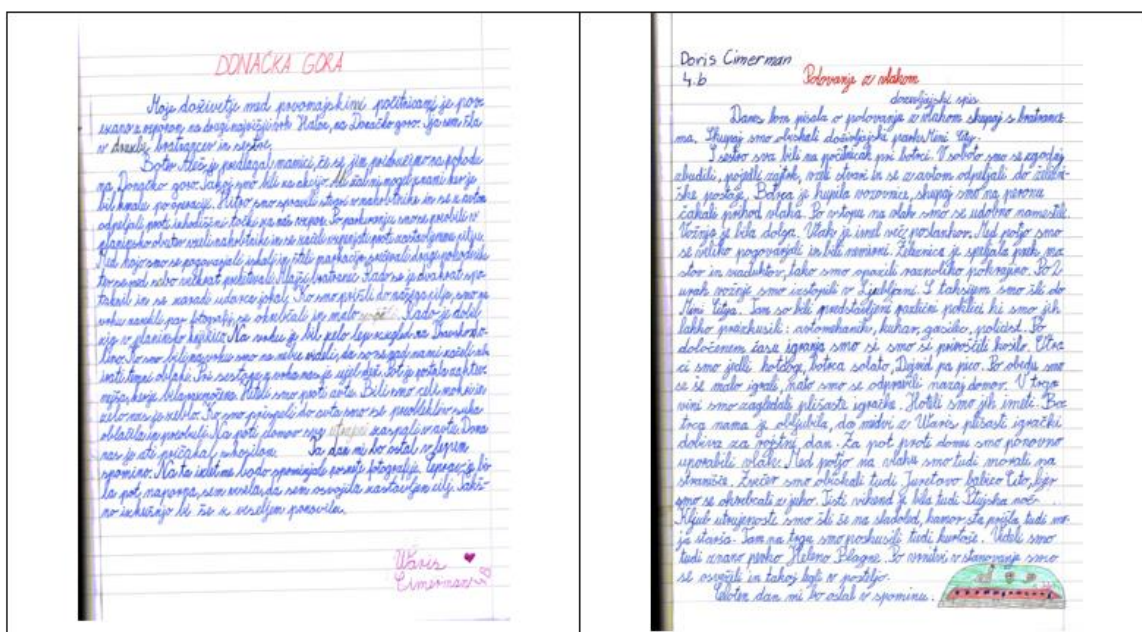 DONAČKA GORA
Moje doživetje med prvomajskimi počitnicami je pove
zano z vzponom na drugi najvišji vrh Haloz, na Donačko goro. Tja sem šla
v družbi bratrancev in sestre.
Boter Aleš je predlagal mamici, če se jim pridružimo na pohodu
na Donačko goro. Takoj smo bili za akcijo. Ati žal ni mogel z nami ker je
bil kmalu po operaciji. Hitro smo spravili stvari v nahrbtnike in se z avtom
odpeljali proti izhodiščni točki za naš vzpon. Po parkiranju smo se preobuli v
planinsko obutev vzeli nahrbtnike in se začeli vzpenjati proti zastavljenemu cilju.
Med hojo smo se pogovarjali iskali in šteli markacije srečevali druge pohodnike
ter se pod nebo večkrat prehitevali. Mlajši bratranec Rado se je dvakrat spo
taknil in se zaradi udarca jokal. Ko smo prišli do našega cilja, smo na
vrhu naredili par fotografij, se okrepčali in malo
žig v planinsko knjižico. Na vrhu je bil zelo lep razgled na Dravsko do
lino. Ko smo bili na vrhu smo na nebu videli, da so se nad nami začeli zbi
rati temni oblaki. Pri sestopu z vrha nas je ujel dež. Pot je postala zahtev
nejša, ker je bila razmočena. Hiteli smo proti avtu. Bili smo čisto mokri in
zelo nas je zeblo. Ko smo prispeli do avta smo se preoblekli v suha
oblačila in preobuli. Na poti domov smo utrujeni zaspali v avtu. Doma
nas je ati pričakal s kosilom. Ta dan mi bo ostal v lepem
spominu. Na ta izlet me bodo spominjale posnete fotografije. Čeprav je bi
la pot naporna, sem vesela, da sem osvojila zastavljen cilj. Takš
no izkušnjo bi še z veseljem ponovila.
Waris
Cimerman 4.B
Doris Cimerman
4.b
Potovanje z vlakom
doživljajski spis
Danes bom pisala o potovanju z vlakom skupaj z bratranc
ma. Skupaj smo obiskali doživljajski park Mini City.
S sestro sva bili na počitnicah pri botrci. V soboto smo se zgodaj
zbudili, pojedli zajtrk, vzeli stvari in se z avtom odpeljali do želežni-
ške postaje. Botrca je kupila vozovnice, skupaj smo na peronu
čakali prihod vlaka. Po vstopu na vlak smo se udobno namestili.
Vožnja je bila dolga. Vlak je imel več postankov. Med potjo smo
se veliko pogovarjali in bili nemirni. Železnica je speljala prek mo
stov in viaduktov, tako smo opazili raznoliko pokrajino. Po 2
urah vožnje smo izstopili v Ljubljani. S taksijem smo šli do
Mini Cityja. Tam so bili predstavljeni različni poklici ki smo jih
lahko preizkusili: avtomehanik, kuhar, gasilec, policist. Po
določenem času igranja smo si smo si privoščili kosilo. Otro
ci smo jedli hotdog, botrca solato, Dejvid pa pico. Po obedu smo
se še malo igrali, nato smo se odpravili nazaj domov. V trgo
vini smo zagledali plišaste igrače. Hoteli smo jih imeti. Bo
trca nama je obljubila, da medvi z Waris plišasti igrački
dobiva za rojstni dan. Za pot proti domu smo ponovno
uporabili vlak. Med potjo na vlaku smo tudi morali na
stranišče. Zvečer smo obiskali tudi Juretovo babico Cito, kjer
smo se okrepčali z juho. Tisti vikend je bila tudi Ptujska noč.
Kljub utrujenosti smo šli še na sladoled, kamor sta prišla tudi mo
ja starša. Tam na trgu smo poskusili tudi kurtoše. Videli smo
tudi znano pevko Heleno Blagne. Po vrnitvi v stanovanje smo
se osvežili in takoj legli v posteljo.
Celoten dan mi bo ostal v spominu.